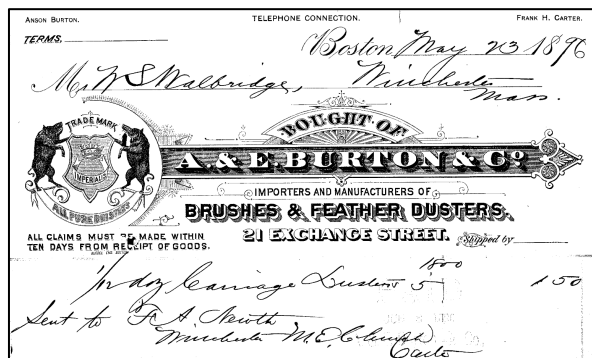 ANSON BURTON. TELEPHONE CONNECTION. FRANK H. CARTER.
TERMS,
Boston May 23 1896
Mr W S Walbridge,
Winchester
Mass.
BOUGHT OF
A. & E. BURTON & Co.
TRADE MARK
IMPERIAL
ALL PURE BRISTLES
IMPORTERS AND MANUFACTURERS OF
BRUSHES & FEATHER DUSTERS.
21 EXCHANGE STREET.
Shipped by
ALL CLAIMS MUST BE MADE WITHIN
TEN DAYS FROM RECEIPT OF GOODS.
1/12 doz Carriage Dusters 5 1800 1 50
Sent to F. A. Newth
Winchester M. E. Church